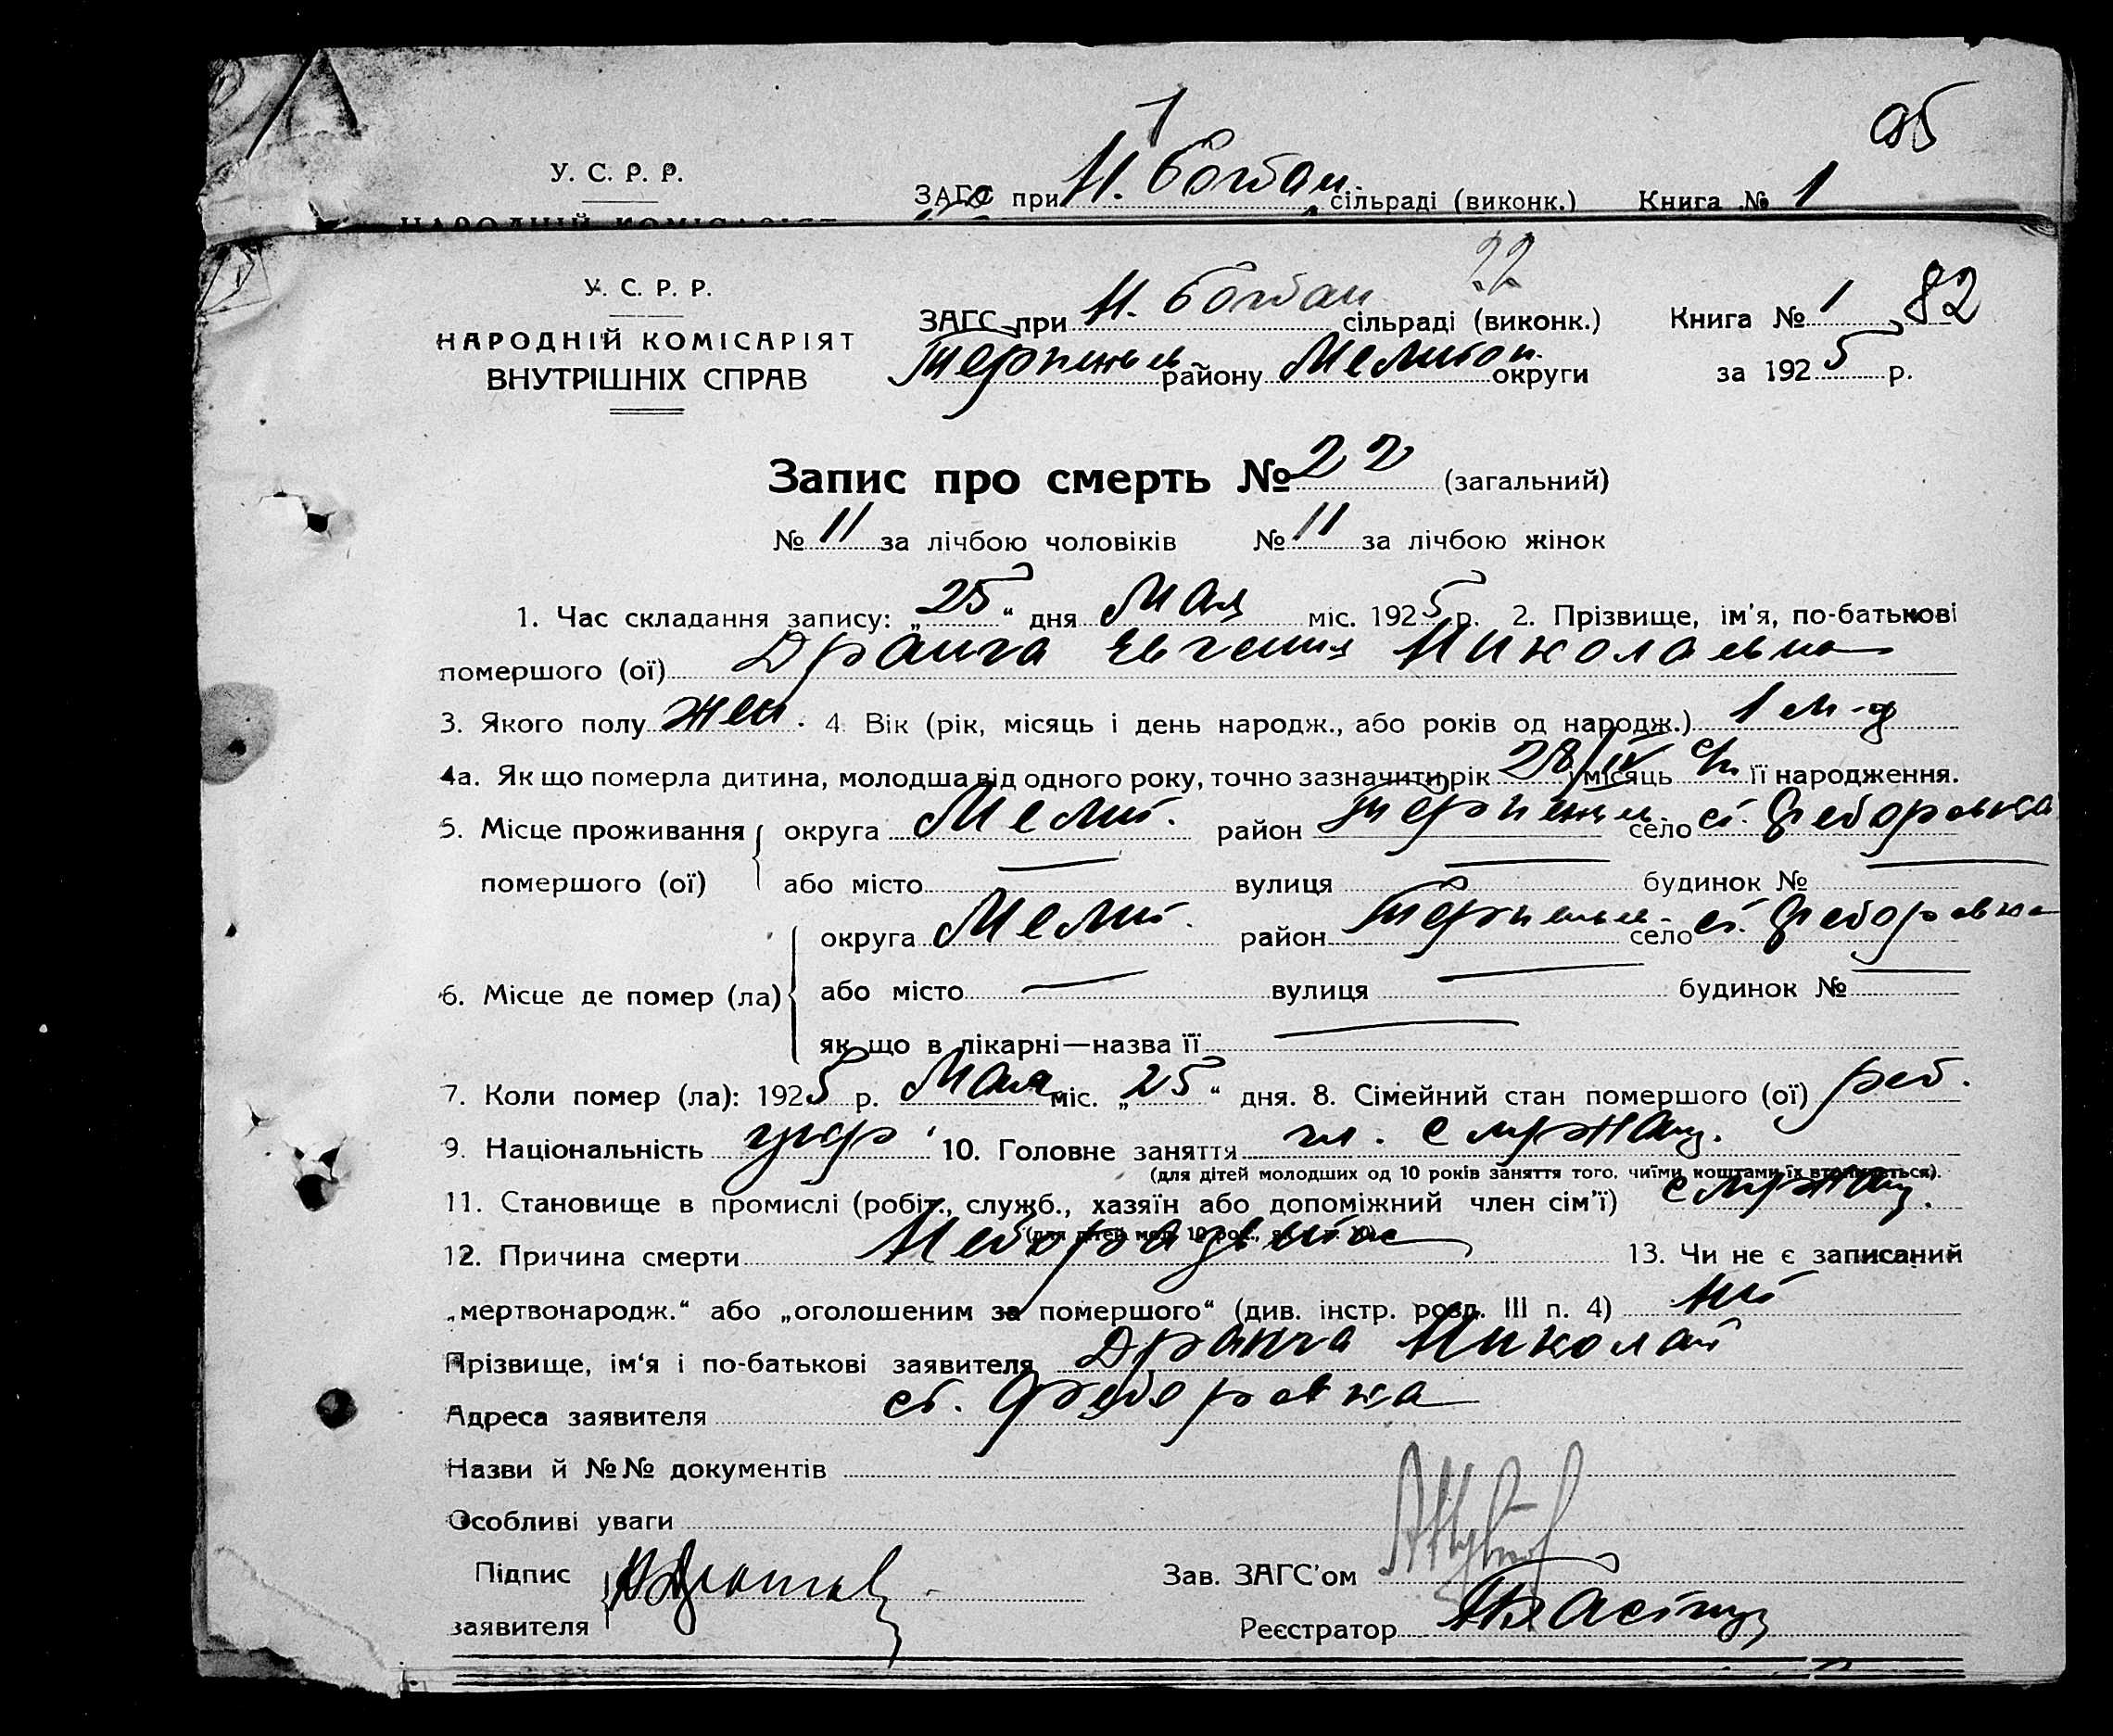 У. С. Р. Р.
ЗАГС при Н. Богдан. сільраді (виконк.) Книга № 1
НАРОДНІЙ КОМІСАРІЯТ
22
У. С. Р. Р.
НАРОДНІЙ КОМІСАРІЯТ
ВНУТРІШНІХ СПРАВ
ЗАГС при Н. Богдан сільраді (виконк.) Книга № 1 82
Терпеньев. району Мелитоп. округи за 1925 р.
Запис про смерть № 22 (загальний)
№ 11 за лічбою чоловіків № 11 за лічбою жінок
1. Час складання запису: „25“ дня Мая міс. 1925 р. 2. Прізвище, ім'я, по-батькові
помершого (ої) Дранга Евгения Николаевна
3. Якого полу жен. 4. Вік (рік, місяць і день народж., або років од народж.) 1 м-ц
4а. Як що померла дитина, молодша від одного року, точно зазначити рік 28/IV і місяць її народження.
5. Місце проживання округа Мелит. район Терпеньев. село ст. Федоровка
помершого (ої) або місто — вулиця — будинок № —
округа Мелит. район Терпеньев. село ст. Федоровка
6. Місце де помер (ла) або місто — вулиця — будинок № —
як що в лікарні—назва її —
7. Коли помер (ла): 1925 р. Мая міс. „25“ дня. 8. Сімейний стан помершого (ої) реб.
9. Національність укр. 10. Головне заняття
(для дітей молодших од 10 років заняття того, чиїми коштами їх втримується).
11. Становище в промислі (робіт., служб., хазяїн або допоміжний член сім'ї)
12. Причина смерти 13. Чи не є записаний
„мертвонародж.“ або „оголошеним за помершого“ (див. інстр. розд. III п. 4) нет
Прізвище, ім'я і по-батькові заявителя Дранга Николай
Адреса заявителя ст. Федоровка
Назви й №№ документів
Особливі уваги
Підпис
заявителя
Зав. ЗАГС'ом
Реєстратор